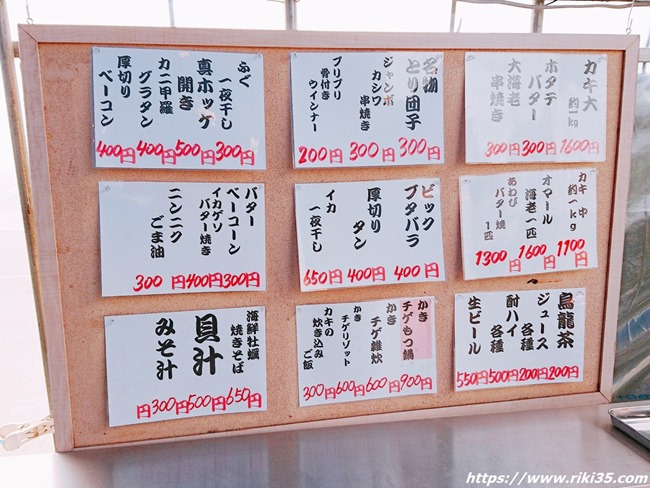 カキ大
約一kg
1600円
ホタテ
バター
300円
大海老
串焼き
300円
名物
とり団子
300円
ジャンボ
カシワ
串焼き
300円
プリプリ
骨付き
ウインナー
200円
ふぐ
一夜干し
300円
真ホッケ
開き
500円
カニ甲羅
グラタン
400円
厚切り
ベーコン
400円
カキ中
約一kg
1100円
オマール
海老一匹
1600円
あわび
バター焼
1匹
1300円
ビック
ブタバラ
400円
厚切り
タン
400円
イカ
一夜干し
650円
バター
ベーコーン
300円
イカゲソ
バター焼き
400円
ニンニク
ごま油
300円
烏龍茶
200円
ジュース
各種
200円
酎ハイ
各種
500円
生ビール
550円
かき
チゲもつ鍋
900円
かき
チゲ雑炊
600円
かき
チゲリゾット
600円
カキの
炊き込み
ご飯
300円
海鮮牡蠣
焼きそば
650円
貝汁
500円
みそ汁
300円
https://www.riki35.com